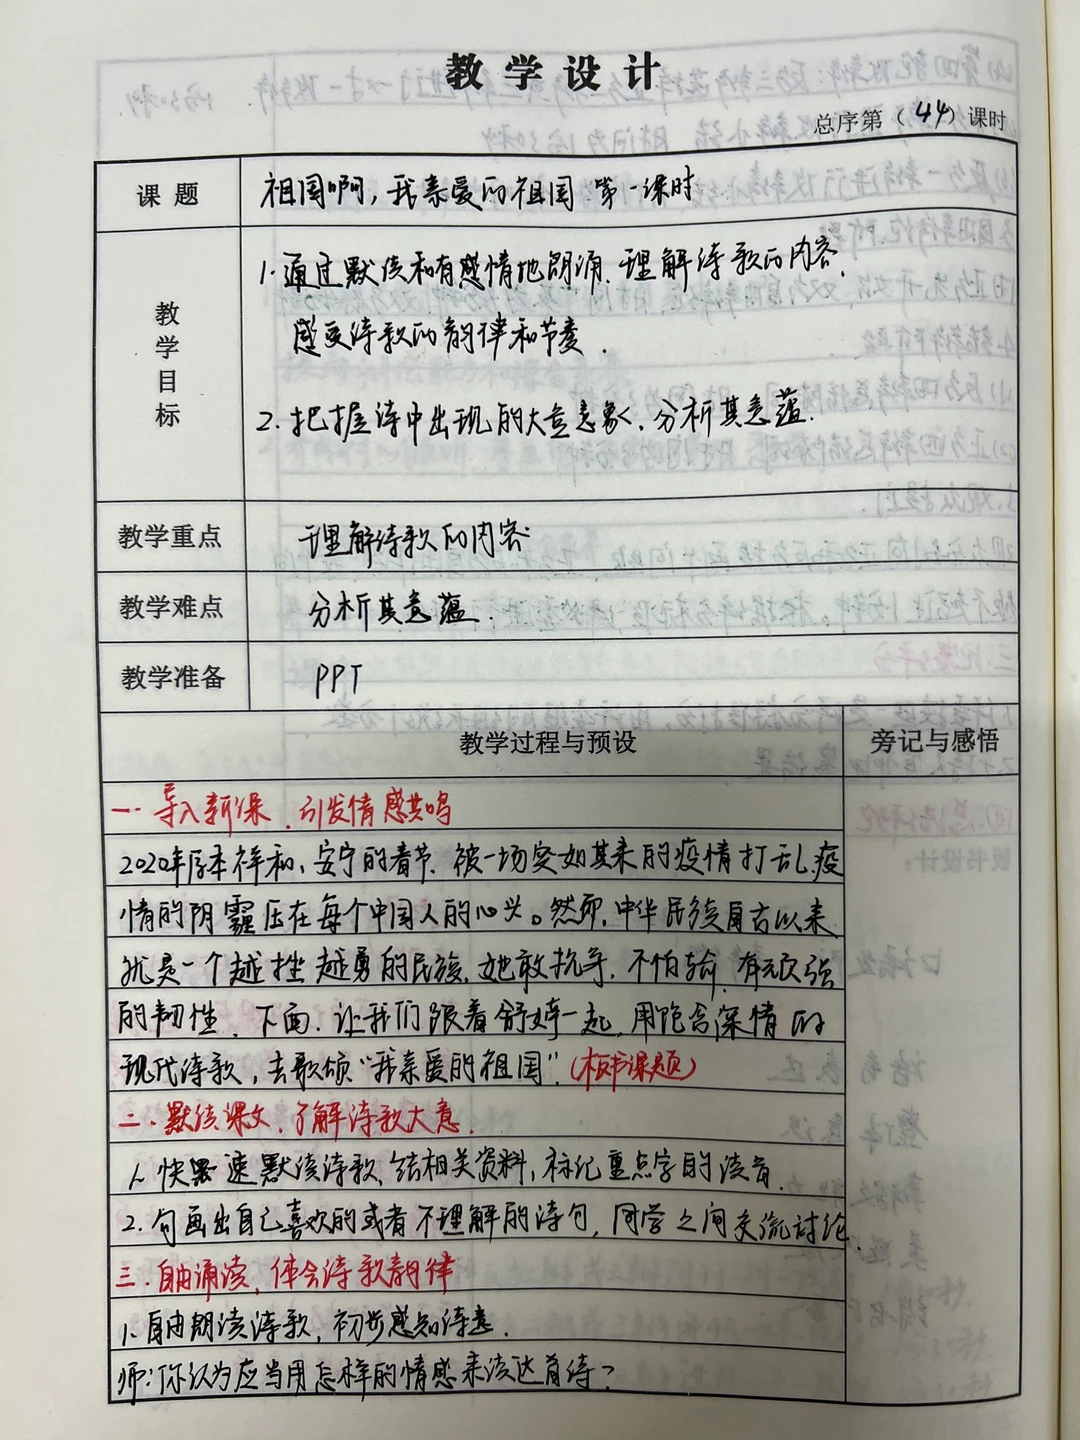 教学设计
总序第（44）课时
课题
祖国啊，我亲爱的祖国 第一课时
教学目标
1.通过默读和有感情地朗诵，理解诗歌的内容，
感受诗歌的韵律和节奏.
2.把握诗中出现的大量意象，分析其意蕴.
教学重点
理解诗歌的内容
教学难点
分析其意蕴.
教学准备
PPT
教学过程与预设
旁记与感悟
一.导入新课，引发情感共鸣
2020年原本祥和、安宁的春节，被一场突如其来的疫情打乱.疫
情的阴霾压在每个中国人的心头。然而，中华民族自古以来
就是一个越挫越勇的民族，她敢抗争，不怕输，有顽强
的韧性，下面，让我们跟着舒婷一起，用饱含深情的
现代诗歌，去歌颂“我亲爱的祖国”.（板书课题）
二.默读课文，了解诗歌大意.
1.快速默读诗歌，结相关资料，标记重点字的读音.
2.勾画出自己喜欢的或者不理解的诗句，同学之间交流讨论.
三.自由诵读，体会诗歌韵律
1.自由朗读诗歌，初步感知诗意.
师：你认为应当用怎样的情感来读这首诗？